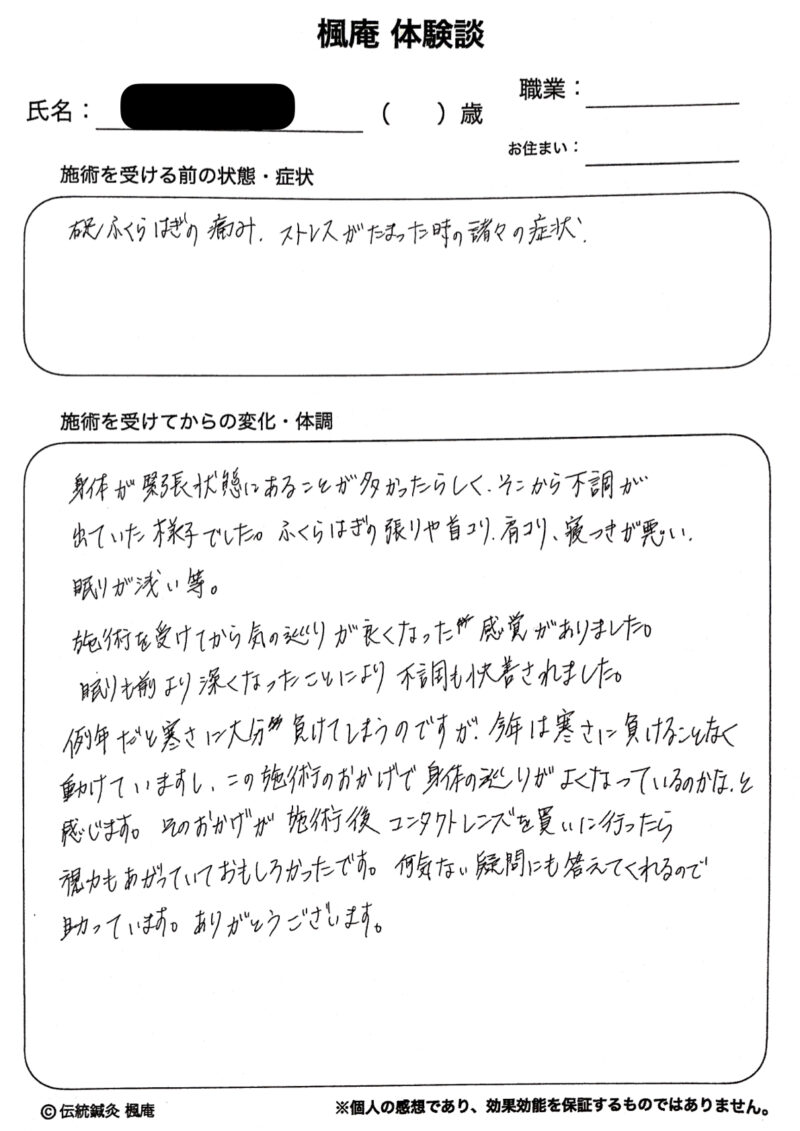 楓庵 体験談
氏名：
（　）歳
職業：
お住まい：
施術を受ける前の状態・症状
ふくらはぎの痛み、ストレスがたまった時の諸々の症状、
施術を受けてからの変化・体調
身体が緊張状態にあることが多かったらしく、そこから不調が
出ていた様子でした。ふくらはぎの張りや首コリ、肩コリ、寝つきが悪い、
眠りが浅い等。
施術を受けてから気の巡りが良くなった感覚がありました。
眠りも前より深くなったことにより不調も改善されました。
例年だと寒さに大分負けてしまうのですが、今年は寒さに負けることなく
動けていますし、この施術のおかげで身体の巡りがよくなっているのかな、と
感じます。そのおかげが施術後コンタクトレンズを買いに行ったら
視力もあがっていておもしろかったです。何気ない疑問にも答えてくれるので
助っています。ありがとうございます。
©伝統鍼灸 楓庵
※個人の感想であり、効果効能を保証するものではありません。